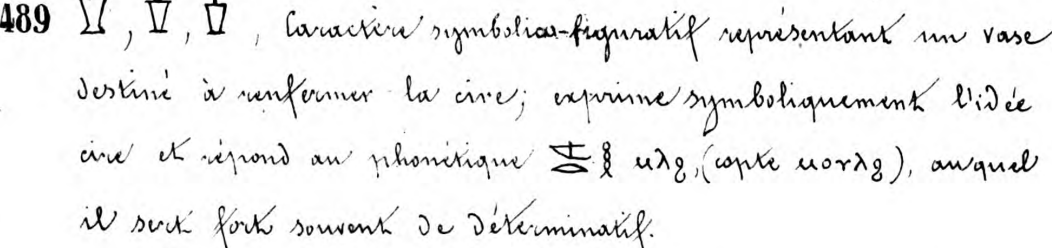 489 , , , Caractère symbolico-figuratif représentant un vase
destiné à renfermer la cire; exprime symboliquement l'idée
cire et répond au phonétique ⲙⲗϩ, (copte ⲙⲟⲩⲗϩ), auquel
il sert fort souvent de déterminatif.